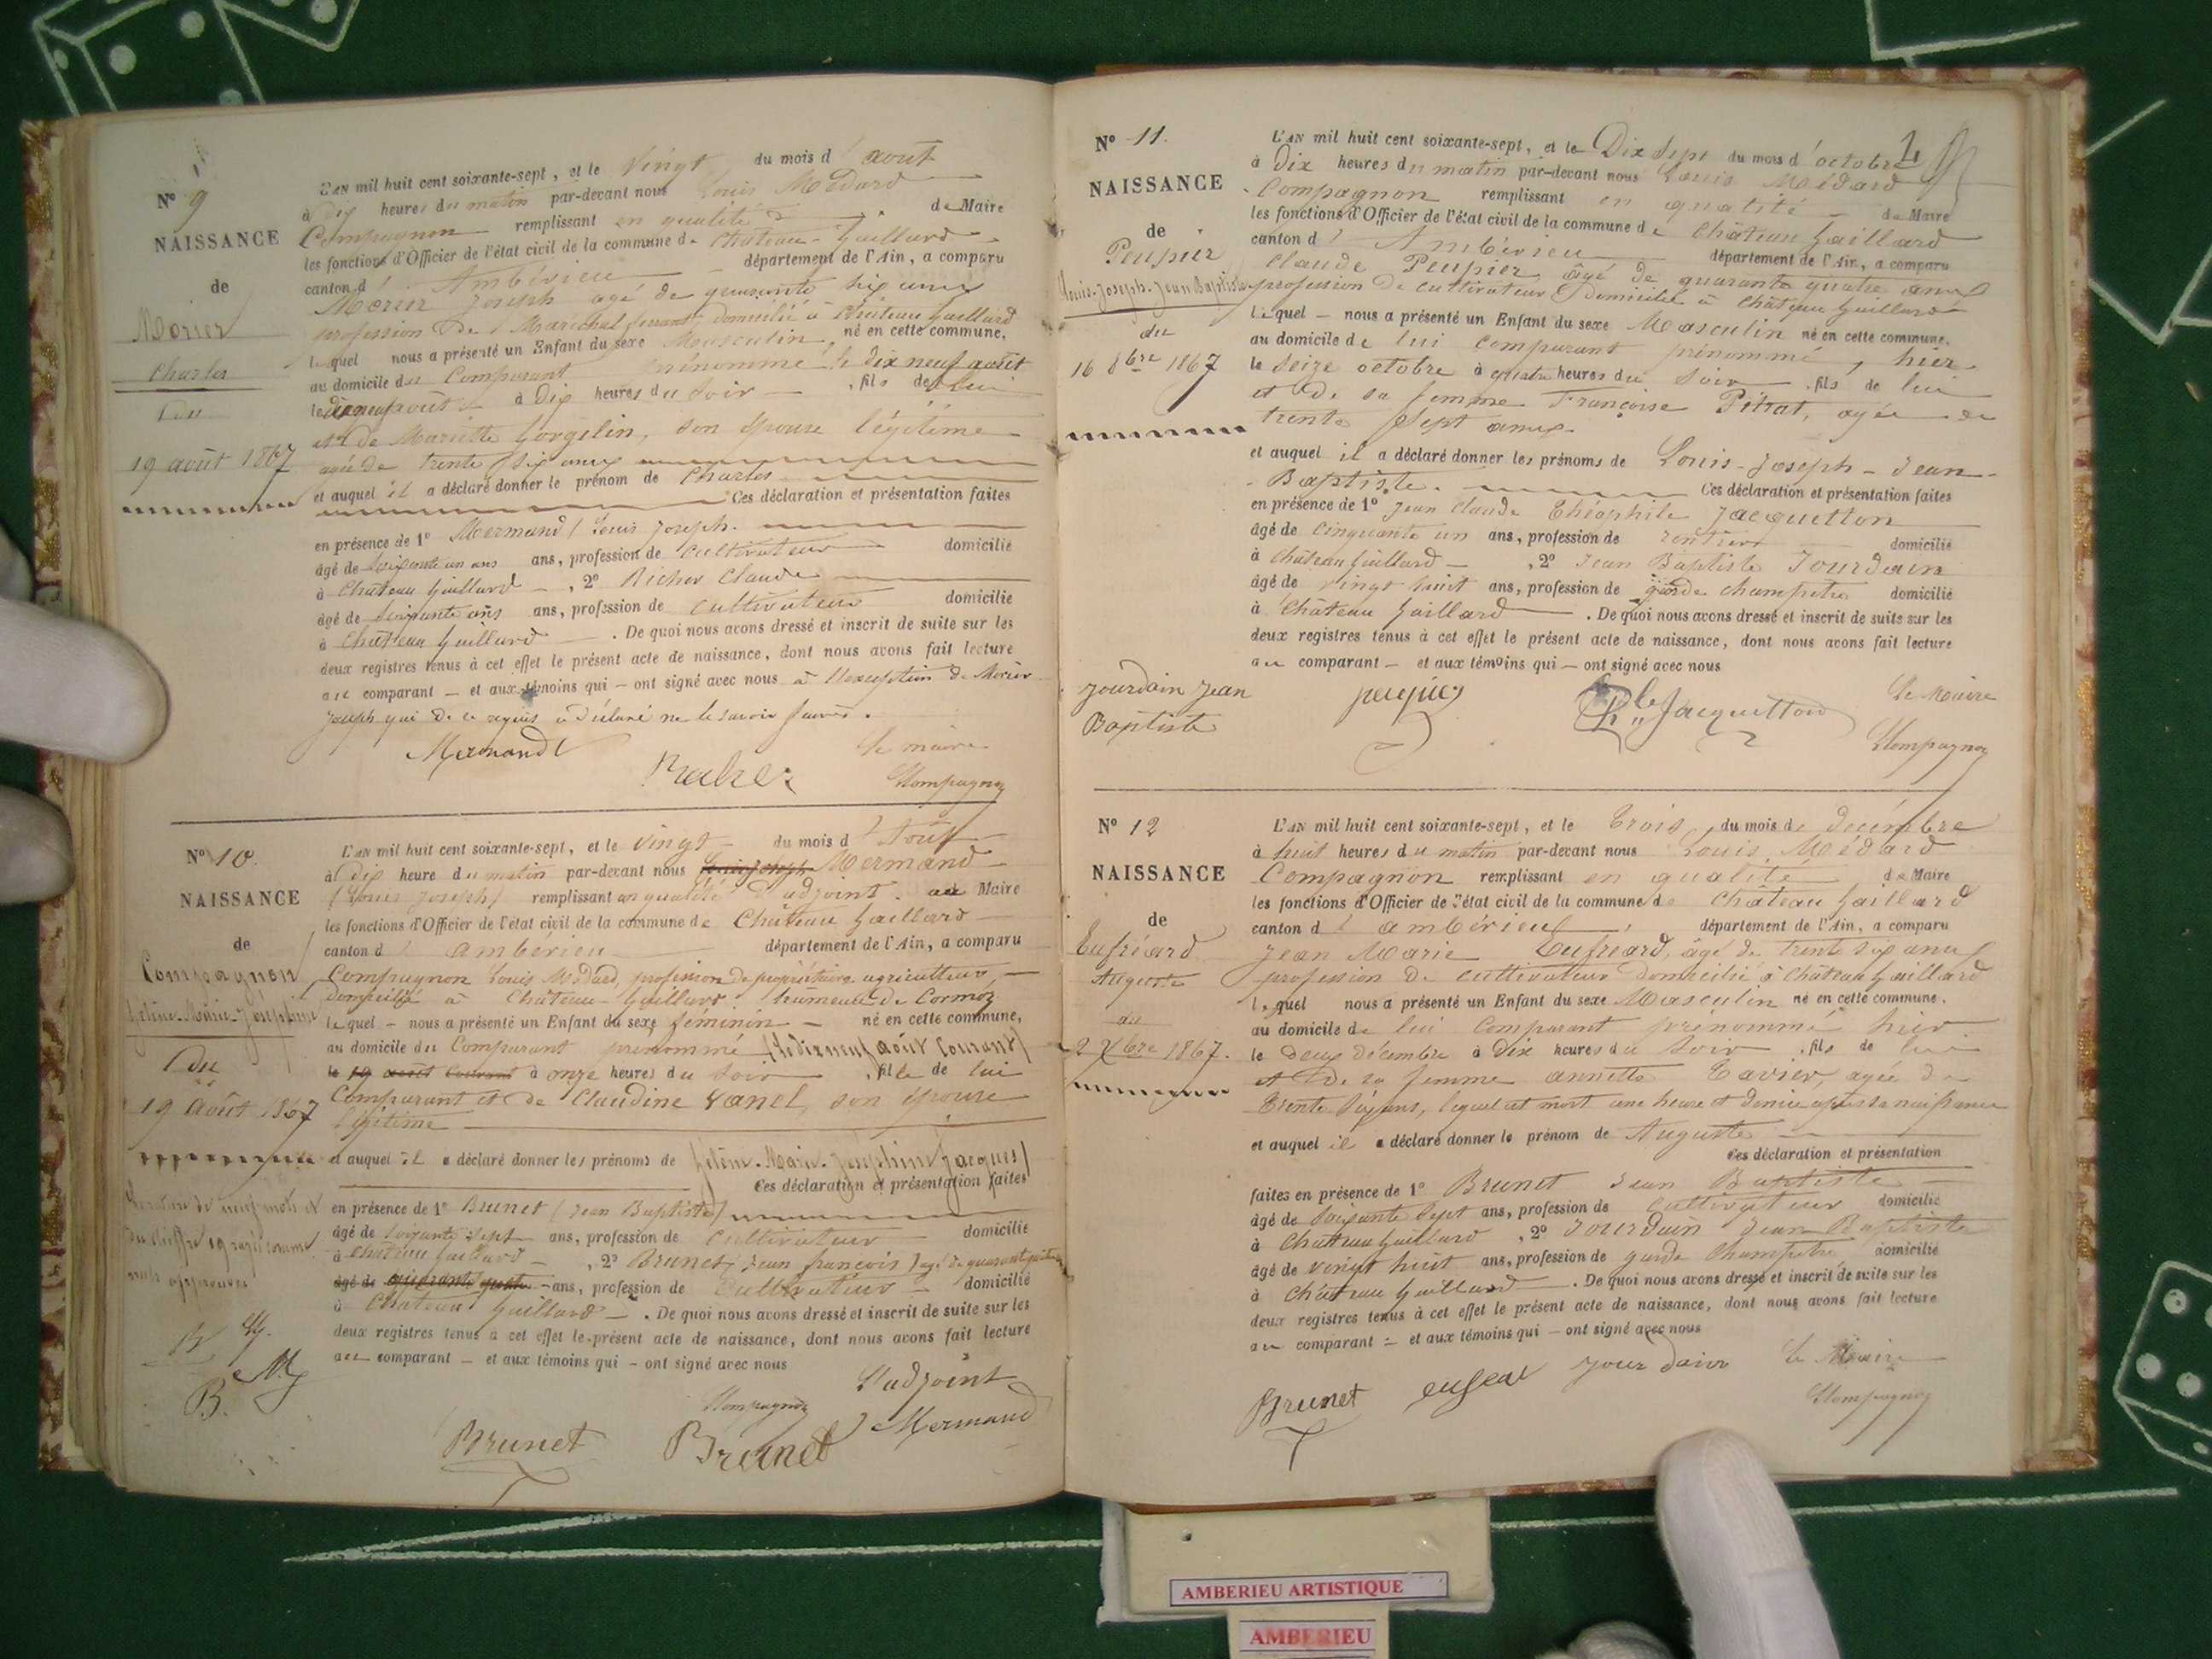 Nº 9
NAISSANCE
de
Morier
Charles
du
19 août 1867
L'AN mil huit cent soixante-sept, et le Vingt du mois d' août
à dix heures du matin par-devant nous Louis Médard
Compagnon remplissant en qualité de Maire
les fonctions d'Officier de l'état civil de la commune de Château-Gaillard
canton d' Ambérieu département de l'Ain, a comparu
Morier Joseph agé de quarante six ans
profession de Maréchal ferrant domicilié à Château Gaillard
lequel nous a présenté un Enfant du sexe Masculin né en cette commune,
au domicile du Comparant prénommé le dix neuf août
le dix neuf août à dix heures du soir fils de lui
et de Mariette Gorgelin, son épouse légitime
agée de trente six ans
et auquel il a déclaré donner le prénom de Charles
Ces déclaration et présentation faites
en présence de 1º Mermand (Louis Joseph.
âgé de soixante un ans ans, profession de cultivateur domicilié
à Château Gaillard, 2º Richer Claude
âgé de soixante ans ans, profession de cultivateur domicilié
à Château Gaillard. De quoi nous avons dressé et inscrit de suite sur les
deux registres tenus à cet effet le présent acte de naissance, dont nous avons fait lecture
au comparant et aux témoins qui ont signé avec nous à l'exception de Morier
Joseph qui de ce requis a déclaré ne le savoir faire.
Mermand
Le maire
Compagnon
Nº 10.
NAISSANCE
de
Compagnon
Hélène-Marie-Joséphine
du
19 Août 1867
L'AN mil huit cent soixante-sept, et le vingt du mois d' Août
à dix heure du matin par-devant nous Louis Joseph Mermand
(Louis Joseph) remplissant en qualité d'adjoint au Maire
les fonctions d'Officier de l'état civil de la commune de Château Gaillard
canton d' amberieu département de l'Ain, a comparu
Compagnon Louis Médard, profession de propriétaire agriculteur,
domicilié à Château-Gaillard hameau de Cormoz
lequel nous a présenté un Enfant du sexe féminin né en cette commune,
au domicile du Comparant prenommé (le dix neuf août courant)
le 19 août courant à onze heures du soir, fille de lui
Comparant et de Claudine Vanel, son épouse
légitime
et auquel il a déclaré donner les prénoms de Hélène-Marie-Joséphine Jacques)
Ces déclaration et présentation faites
en présence de 1º Brunet (Jean Baptiste)
âgé de soixante sept ans, profession de Cultivateur domicilié
à Château Gaillard, 2º Brunet, Jean françois) agé de quarante quatre
âgé de quarante quatre ans, profession de Cultivateur domicilié
à Château Gaillard. De quoi nous avons dressé et inscrit de suite sur les
deux registres tenus à cet effet le présent acte de naissance, dont nous avons fait lecture
au comparant et aux témoins qui ont signé avec nous
L'adjoint
Compagnon
Mermand
Brunet
Brunet
B.
Nº 11.
NAISSANCE
de
Peupier
Louis-Joseph-Jean Baptiste
du
16 8bre 1867
L'AN mil huit cent soixante-sept, et le Dix Sept du mois d' octobre
à Dix heures du matin par-devant nous Louis Médard
Compagnon remplissant en qualité de Maire
les fonctions d'Officier de l'état civil de la commune de Château Gaillard
canton d' Ambérieu département de l'Ain, a comparu
Claude Peupier, âgé de quarante quatre ans
profession de cultivateur domicilié à Château Gaillard
lequel nous a présenté un Enfant du sexe Masculin né en cette commune,
au domicile de lui comparant prénommé, hier
le seize octobre à quatre heures du soir, fils de lui
et de sa femme Françoise Pitrat, agée de
trente sept ans
et auquel il a déclaré donner les prénoms de Louis-Joseph-Jean-
Baptiste. Ces déclaration et présentation faites
en présence de 1º Jean Claude Théophile Jacquetton
âgé de cinquante un ans, profession de rentier domicilié
à Château Gaillard, 2º Jean Baptiste Jourdain
âgé de vingt huit ans, profession de garde champêtre domicilié
à Château Gaillard. De quoi nous avons dressé et inscrit de suite sur les
deux registres tenus à cet effet le présent acte de naissance, dont nous avons fait lecture
au comparant et aux témoins qui ont signé avec nous
Jourdain Jean
Baptiste
Jacquetton
Le Maire
Compagnon
Nº 12
NAISSANCE
de
Eufréard
Auguste
du
2 Xbre 1867.
L'AN mil huit cent soixante-sept, et le Trois du mois de décembre
à huit heures du matin par-devant nous Louis Médard
Compagnon remplissant en qualité de Maire
les fonctions d'Officier de l'état civil de la commune de Château Gaillard
canton d' ambérieu, département de l'Ain, a comparu
Jean Marie Eufréard, âgé de trente six ans
profession de cultivateur domicilié à Château Gaillard
lequel nous a présenté un Enfant du sexe Masculin né en cette commune.
au domicile de lui comparant prénommé hier
le deux décembre à dix heures du soir, fils de lui
et de sa femme annette Tavier, agée de
trente six ans, lequel est mort une heure et demie après sa naissance
et auquel il a déclaré donner le prénom de Auguste
Ces déclaration et présentation
faites en présence de 1º Brunet Jean Baptiste
âgé de soixante sept ans, profession de cultivateur domicilié
à Château Gaillard, 2º Jourdain Jean Baptiste
âgé de vingt huit ans, profession de garde Champêtre domicilié
à Château Gaillard. De quoi nous avons dressé et inscrit de suite sur les
deux registres tenus à cet effet le présent acte de naissance, dont nous avons fait lecture
au comparant et aux témoins qui ont signé avec nous
Brunet
Jourdain
Le Maire
Compagnon
AMBERIEU ARTISTIQUE
AMBERIEU